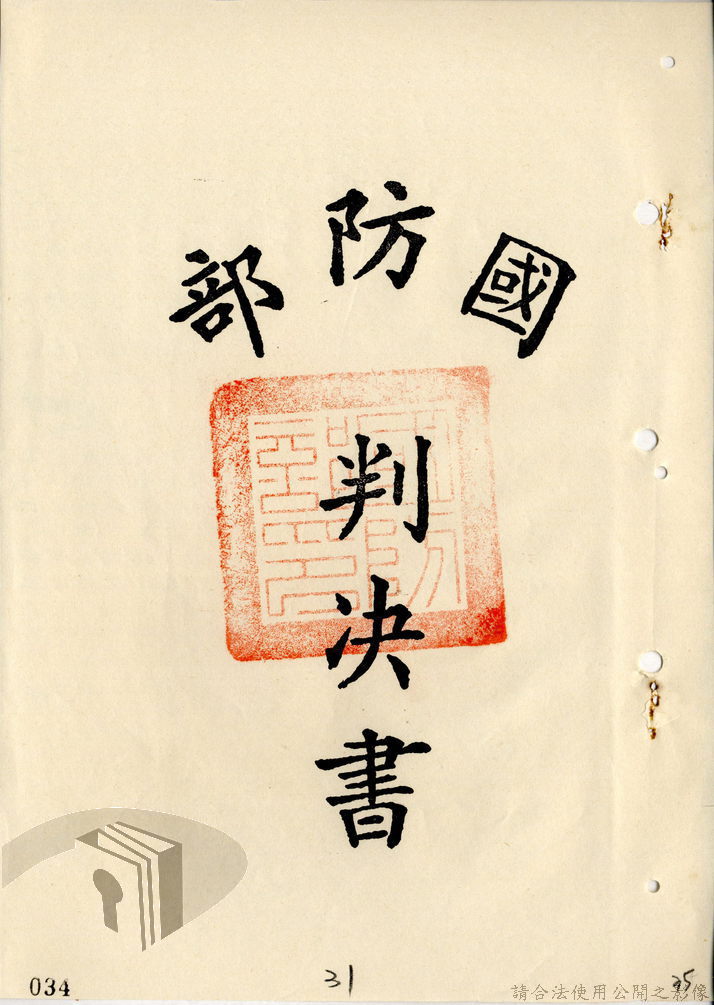 國防部
判決書
034
31
35
請合法使用公開之影像